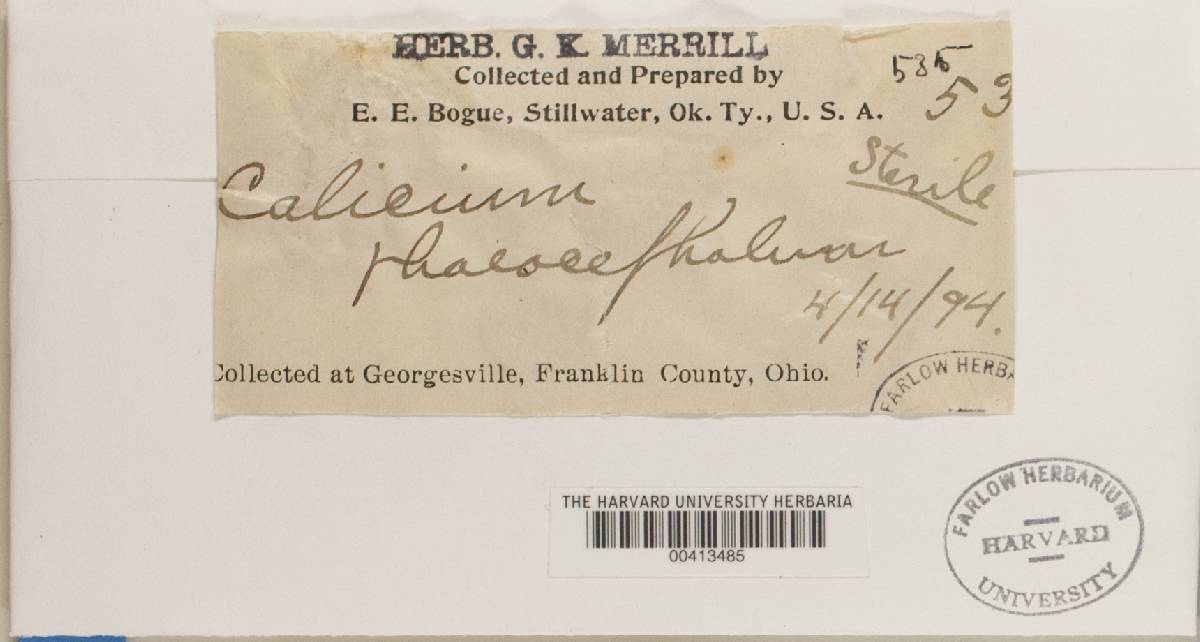 HERB. G. K. MERRILL
Collected and Prepared by
E. E. Bogue, Stillwater, Ok. Ty., U. S. A.
535
53
Sterile
Calicium
phaeocephalum
4/14/94.
Collected at Georgesville, Franklin County, Ohio.
FARLOW HERBA
THE HARVARD UNIVERSITY HERBARIA
00413485
FARLOW HERBARIUM
HARVARD
UNIVERSITY